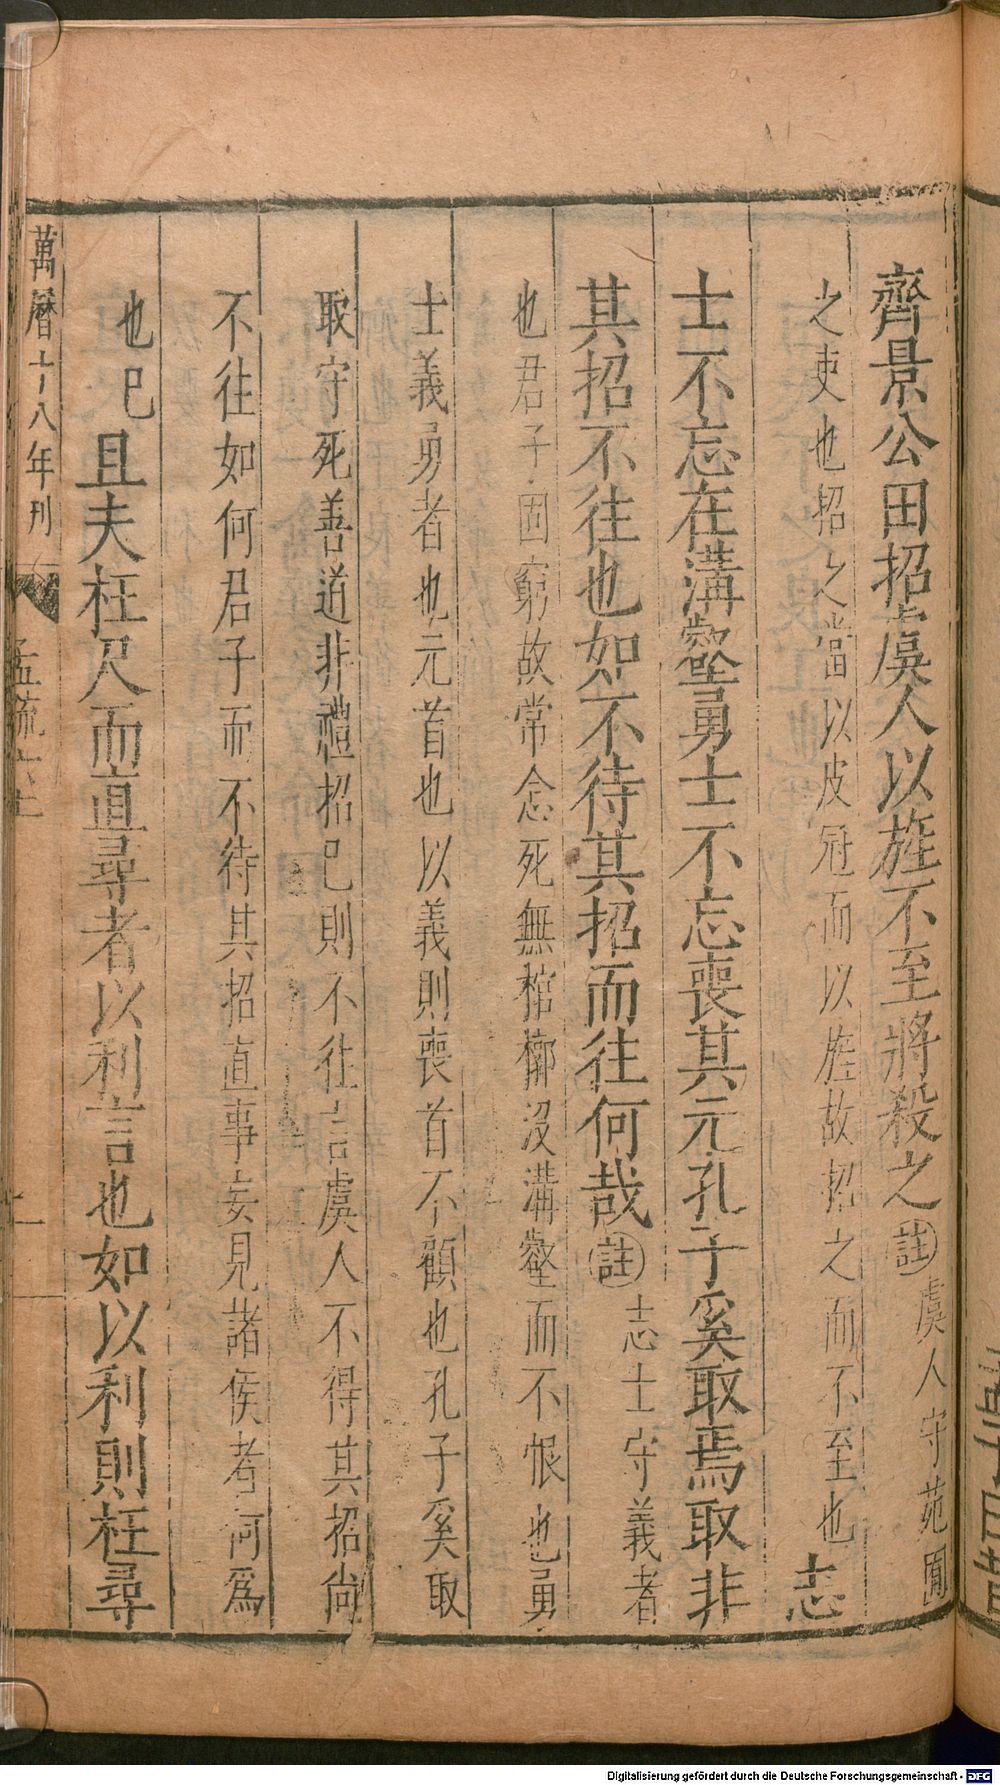 齊景公田招虞人以旌不至將殺之註虞人守苑囿
之吏也招之當以皮冠而以旌故招之而不至也志
士不忘在溝壑勇士不忘喪其元孔子奚取焉取非
其招不往也如不待其招而往何哉註志士守義者
也君子固窮故常念死無棺槨沒溝壑而不恨也勇
士義勇者也元首也以義則喪首不顧也孔子奚取
取守死善道非禮招已則不往言虞人不得其招尚
不往如何君子而不待其招直事妄見諸侯者何爲
也已且夫枉尺而直尋者以利言也如以利則枉尋
萬曆十八年刊
孟疏六上
Digitalisierung gefördert durch die Deutsche Forschungsgemeinschaft - DFG